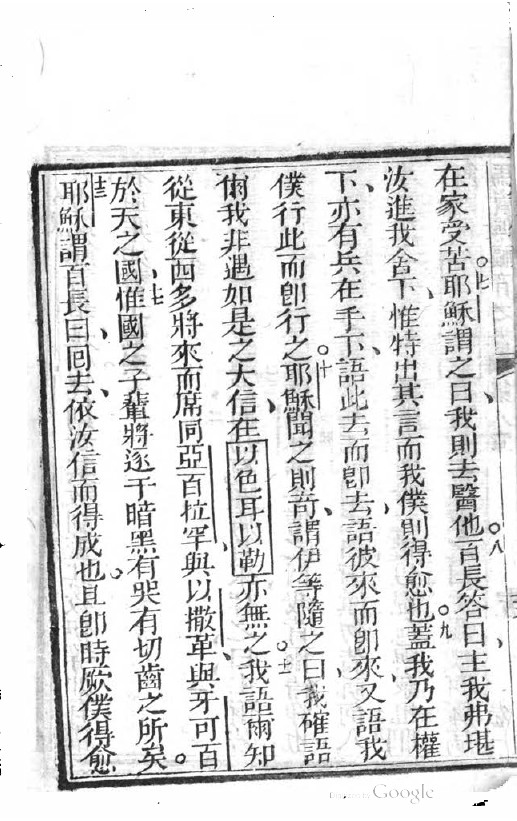 在家受苦。七耶穌謂之曰、我則去醫他。八百長答曰、主我弗堪
汝進我舍下、惟特出其言而我僕則得愈也。九蓋我乃在權
下、亦有兵在手下、語此去而即去、語彼來而即來、又語我
僕行此而即行之。十耶穌聞之則奇、謂伊等隨之曰、我確語
爾、我非遇如是之大信、在以色耳以勒亦無之。十一我語爾知、
從東從西多將來而席同亞百拉罕與以撒革、與牙可百
於天之國、十二惟國之子輩將逐于暗黑、有哭有切齒之所矣。
十三耶穌謂百長曰、回去、依汝信而得成也。且即時厥僕得愈
Google